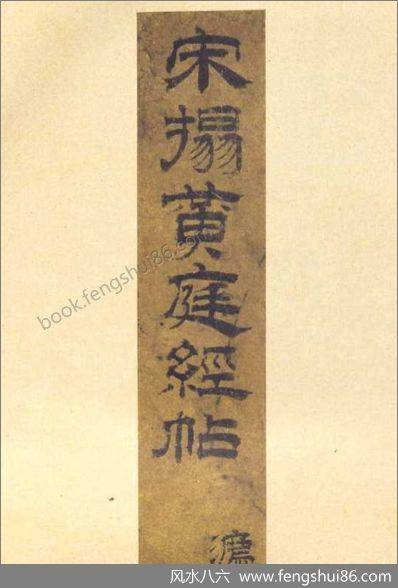 宋搨黄庭經帖
book.fengshui86.com
风水八六 www.fengshui86.com